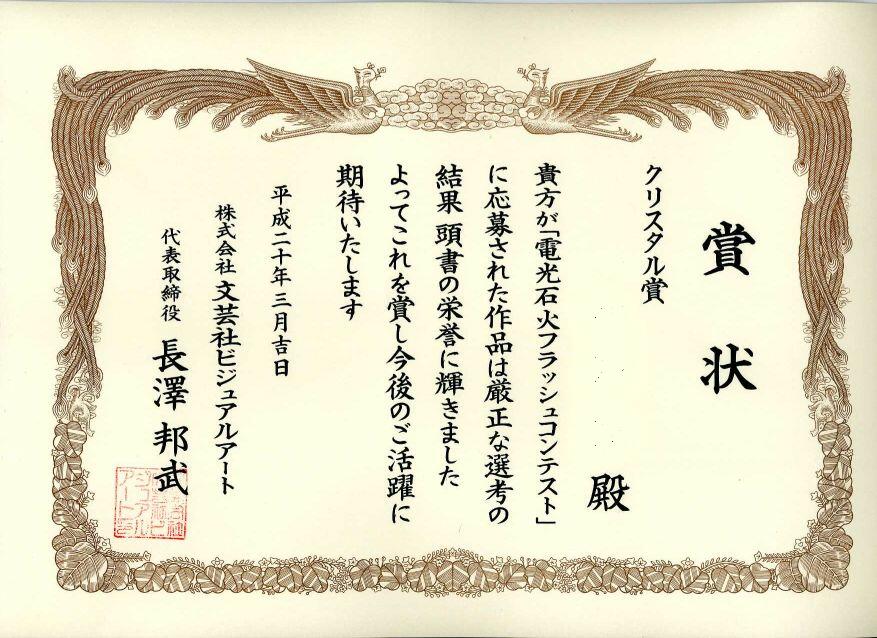 賞状
クリスタル賞
殿
貴方が「電光石火フラッシュコンテスト」
に応募された作品は厳正な選考の
結果 頭書の栄誉に輝きました
よってこれを賞し今後のご活躍に
期待いたします
平成二十年三月吉日
株式会社 文芸社ビジュアルアート
代表取締役 長澤 邦武